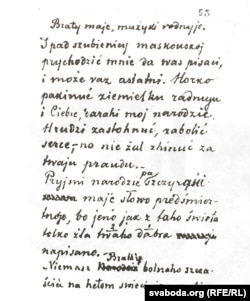 53
Braty maje, mużyki rodnyje.
Z pad szubienicy maskouskoj
prychodzić mnie da was pisaci,
i może raz astatni. Horko
pakinuć ziemielku radnuju
i Ciebie, daraki moj narodzie.
Hrudzi zastohnuć, zabolić
serce,- no nie żal zhinuć za
twaju praudu.-
Pryjmi narodzie pa szczyrosti
maje słowo predśmiert-
noje, bo jeno jak z taho świeta
tolko dla twaho dabra
napisano.
Bratkie
Niemasz bolszaho szcza-
ścia na hetom świeci
svaboda.org © RFE/RL